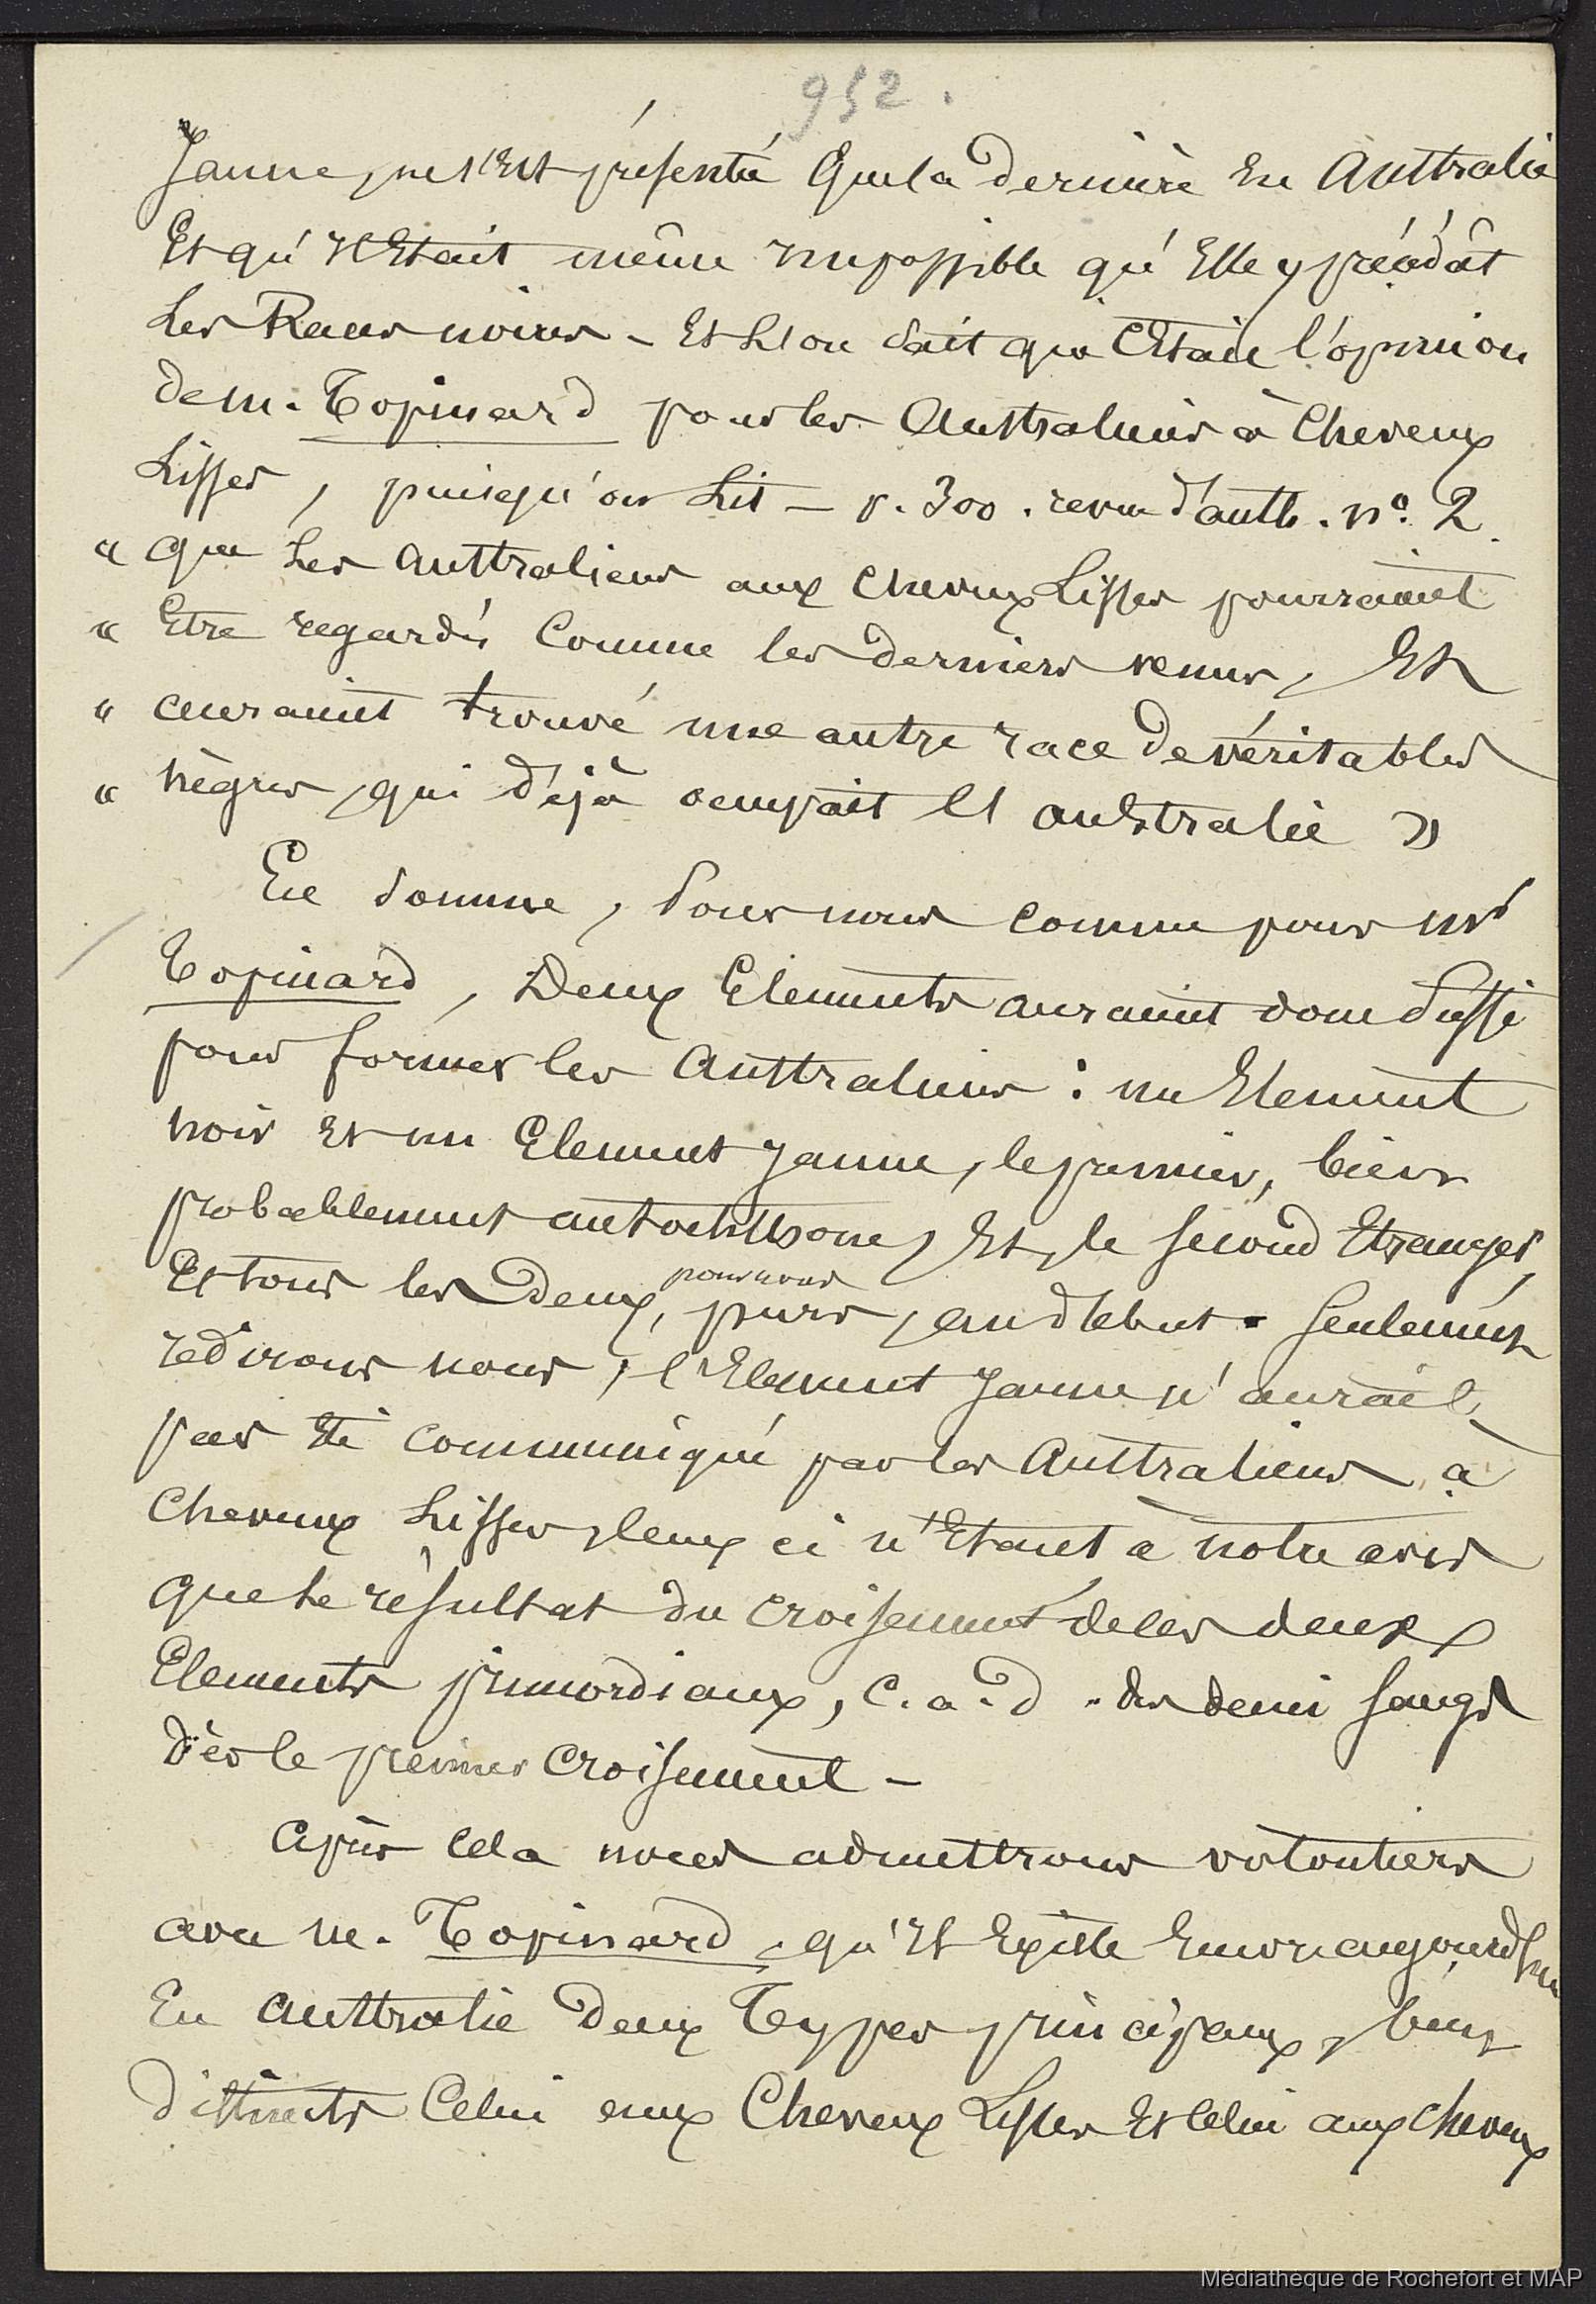 952.
Jaune, ne s'est présenté que la dernière en Australie
Et qu'il était même impossible qu'Elle y précédât
Les Races noires – Et L'on sait que C'était l'opinion
de m. Topinard pour les Australiens à Cheveux
Lisses, puisqu'on Lit – p. 300. revue d'anth. n° 2.
« que Les Australiens aux Cheveux Lisses pourraient
« Etre regardés Comme les derniers venus, Et
« auraient trouvé une autre race de véritables
« nègres, qui déjà occupait l'Australie »
En somme, Pour nous comme pour mr
Topinard, Deux Elements auraient donc suffi
pour former les Australiens : un Element
noir et un Element jaune, le premier, bien
probablement autochthone, Et, le second Etranger,
Et tous les Deux, pour nous purs, au début. Seulement
redirons nous, l'Element jaune n'aurait
pas été communiqué par les Australiens à
Cheveux Lisses, Ceux ci n'Etant à notre avis
que le résultat du croisement de ces deux
Elements primordiaux, c. a. d. des demi sangs
dès le premier croisement –
Après cela nous admettrons volontiers
avec m. Topinard, qu'il Existe Encore aujourd'hui
En Australie Deux Types principaux, bien
distincts Celui aux Cheveux Lisses Et Celui aux cheveux
Médiathèque de Rochefort et MAP